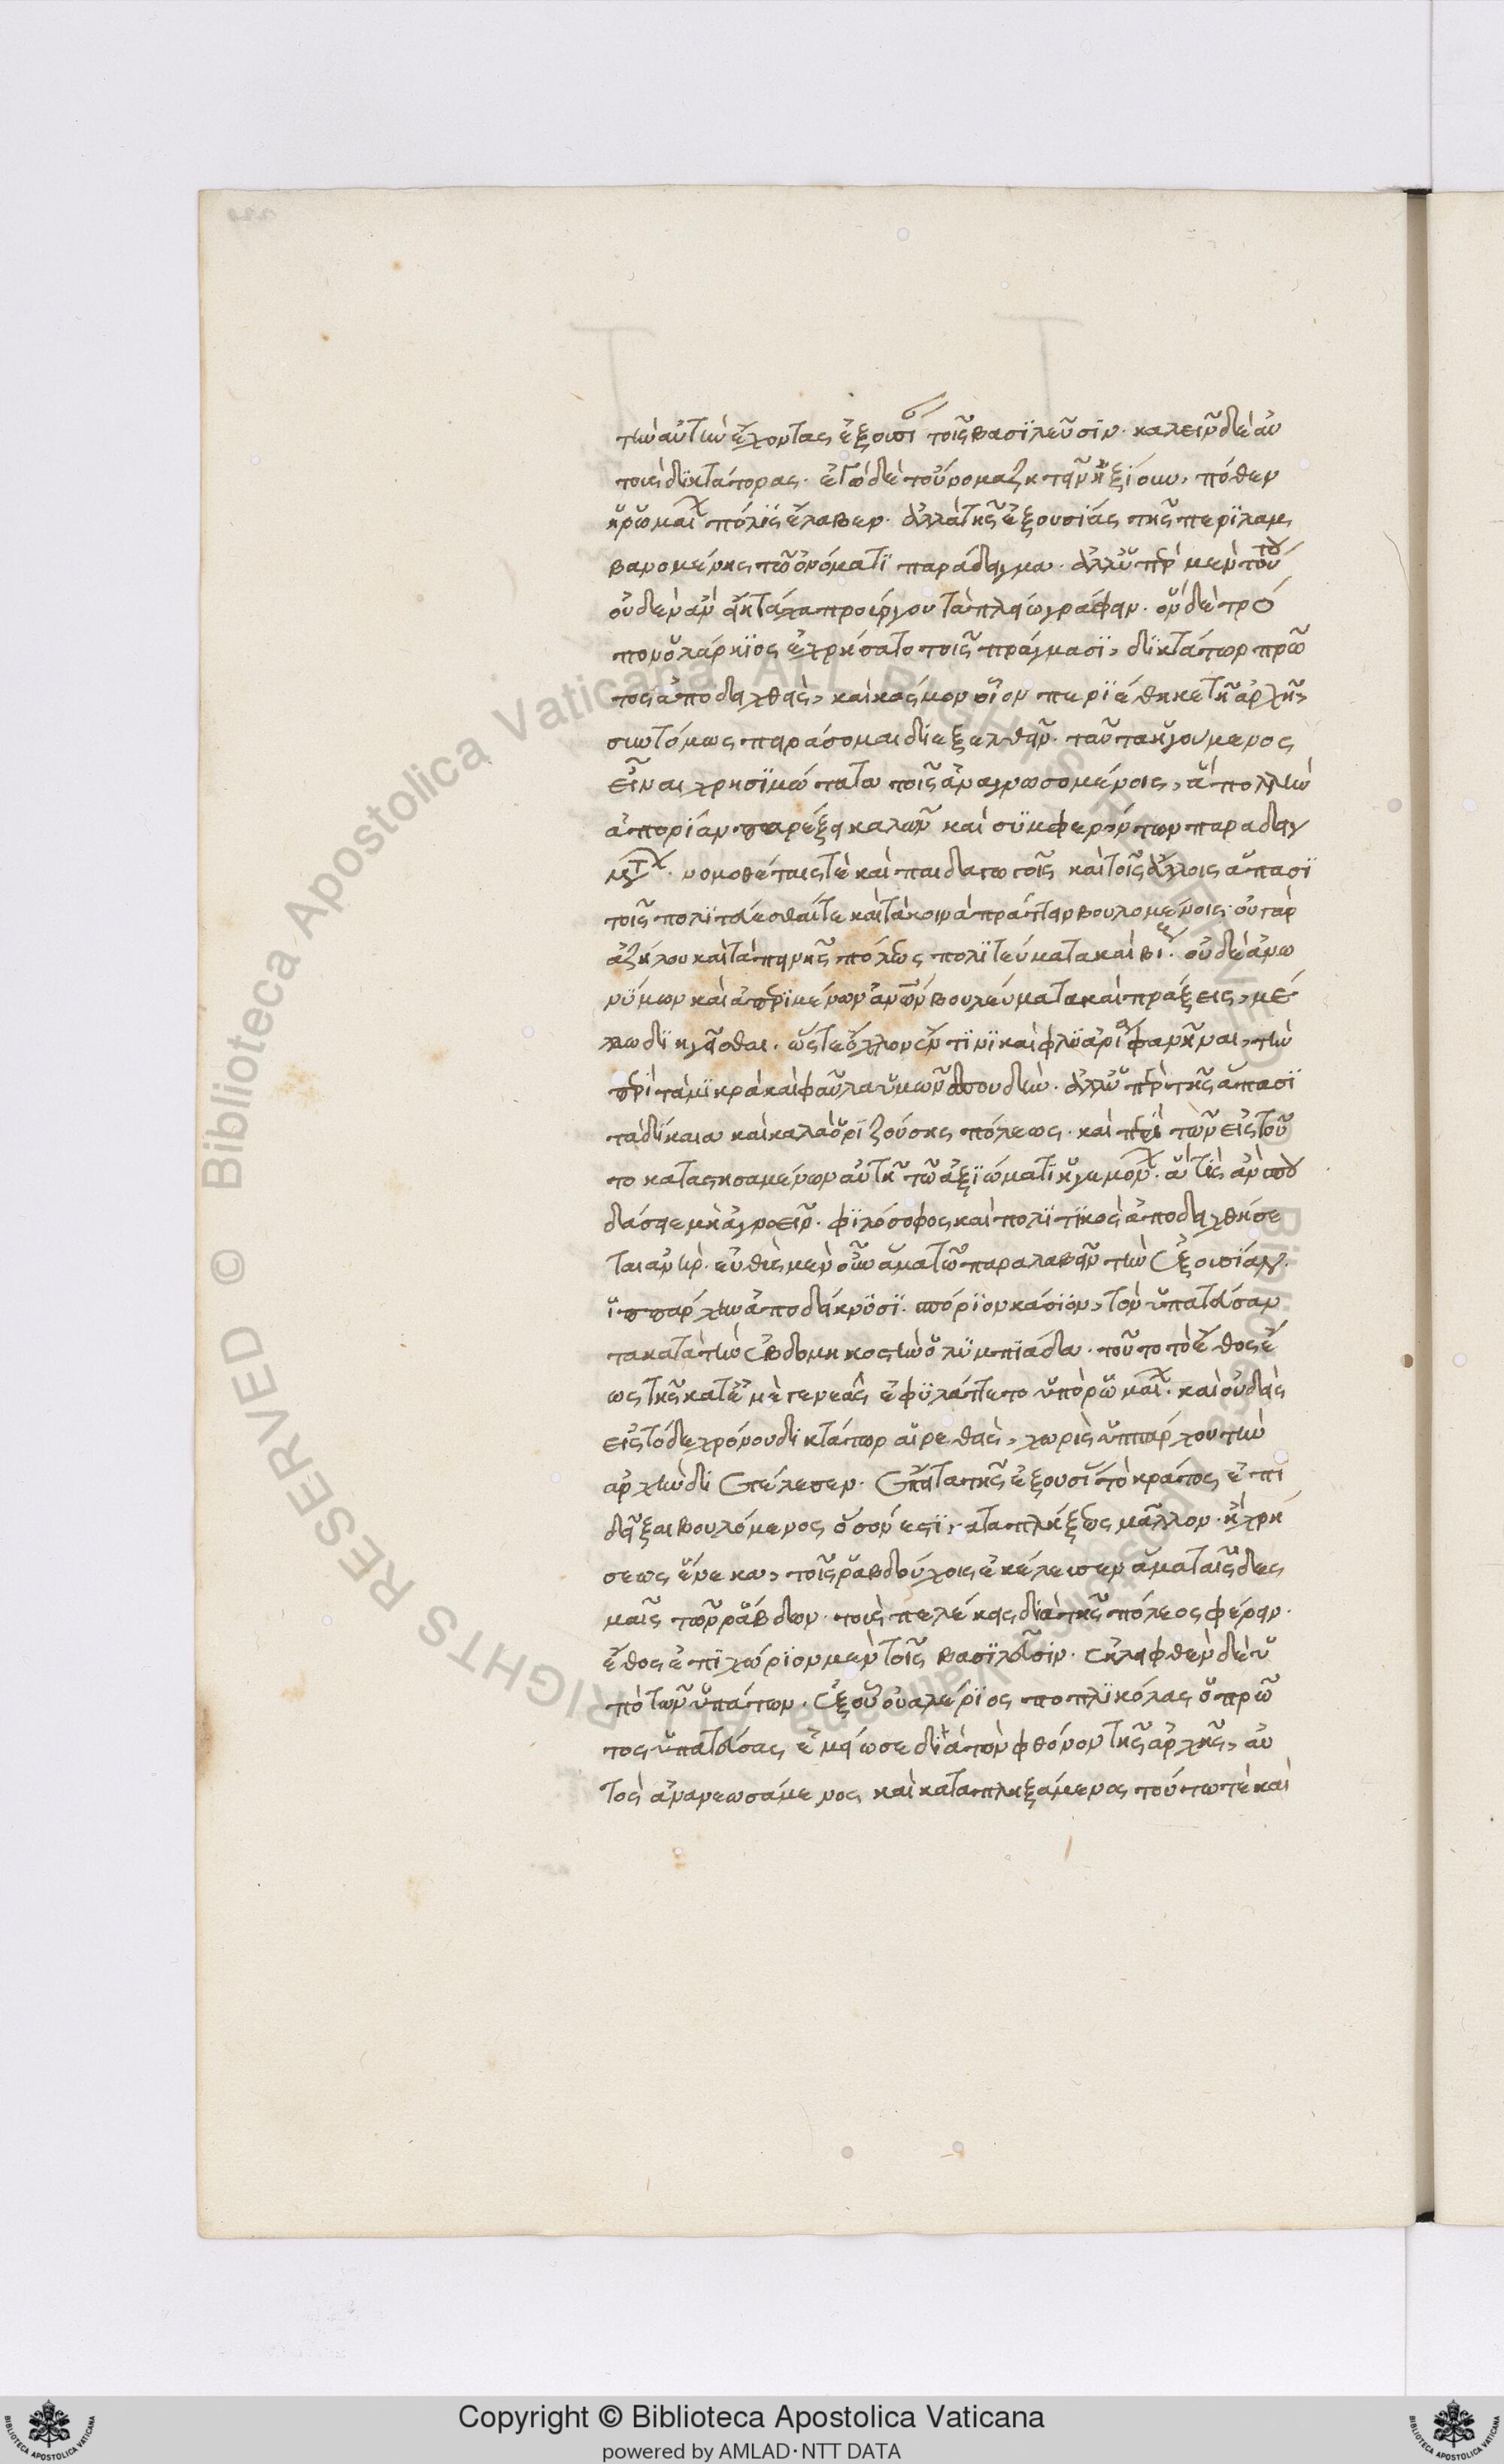 τὴν αὐτὴν ἔχοντας ἐξουσίαν τοῖς βασιλεῦσιν. καλεῖν δὲ αὐ
τοὺς δικτάτορας. ἐγὼ δὲ τοὔνομα ζητεῖν ἠξίουν, πόθεν
ἡ ῥωμαίων πόλις ἔλαβεν. ἀλλὰ τῆς ἐξουσίας τῆς περιλαμ
βανομένης τῷ ὀνόματι παράδειγμα. ἀλλ' ὑπὲρ μὲν τούτου
οὐδὲν ἂν τάχα προύργου τὰ πλείω γράφειν. ὃν δὲ τρό
πον ὁ λάρκιος ἐχρήσατο τοῖς πράγμασι, δικτάτωρ πρῶ
τος ἀποδειχθεὶς, καὶ κόσμον οἷον περιέθηκε τῇ ἀρχῇ,
συντόμως πειράσομαι διεξελθεῖν. ταῦτα ἡγούμενος
εἶναι χρησιμώτατα τοῖς ἀναγνωσομένοις, ἃ πολλὴν
ἀπορίαν παρέξει καλῶν καὶ συμφερόντων παραδειγ
μάτων. νομοθέταις τὲ καὶ παιδαγωγοῖς καὶ τοῖς ἄλλοις ἅπασι
τοῖς πολιτεύεσθαί τε καὶ τὰ κοινὰ πράττειν βουλομένοις. οὐ γὰρ
ἀζήλου καὶ ταπεινῆς πόλεως πολιτεύματα καὶ βίους. οὐδὲ ἀνω
νύμων καὶ ἀπερριμένων ἀνθρώπων βουλεύματα καὶ πράξεις, μέλ
λω διηγεῖσθαι. ὥστε ὄχλον ἄν τινι καὶ φλυαρίαν φανῆναι, τὴν
περὶ τὰ μικρὰ καὶ φαῦλα ἡμῶν σπουδήν. ἀλλ' ὑπὲρ τῆς ἅπασι
τὰ δίκαια καὶ καλὰ ὁριζούσης πόλεως. καὶ περὶ τῶν εἰς τοῦ
το καταστησαμένων αὐτὴν τὸ ἀξίωμα ἡγεμόνων. ἅ τις ἂν σπου
δάσειε μὴ ἀγνοεῖν. φιλόσοφος καὶ πολιτικὸς ἀποδειχθήσε
ται ἀνήρ. εὐθὺς μὲν οὖν ἅμα τῷ παραλαβεῖν τὴν ἐξουσίαν.
ἵππαρχον ἀποδείκνυσι. σπόριον κάσιον, τὸν ὑπατεύσαν
τα κατὰ τὴν ἑβδομηκοστὴν ὀλυμπιάδα. τοῦτο τὸ ἔθος ἕ
ως τῆς κατ' ἐμὲ γενεᾶς ἐφυλάττετο ὑπὸ ῥωμαίων. καὶ οὐδεὶς
εἰς τόδε χρόνου δικτάτωρ αἱρεθεὶς, χωρὶς ἱππάρχου τὴν
ἀρχὴν διετέλεσεν. ἔπειτα τῆς ἐξουσίας τὸ κράτος ἐπι
δεῖξαι βουλόμενος ὅσον ἐστὶ, καταπλήξεως μᾶλλον ἢ χρή
σεως ἕνεκα, τοῖς ῥαβδούχοις ἐκέλευσεν ἅμα ταῖς δες
μαῖς τῶν ῥάβδων τοὺς πελέκεις διὰ τῆς πόλεος φέρειν.
ἔθος ἐπιχώριον μὲν τοῖς βασιλεῦσιν. ἐκλειφθὲν δὲ ὑ
πὸ τῶν ὑπάτων. ἐξ οὗ οὐαλέριος ποπλικόλας ὁ πρῶ
τος ὑπατεύσας ἐμείωσε διὰ τὸν φθόνον τῆς ἀρχῆς, αὐ
τὸς ἀνανεωσάμενος καὶ καταπληξάμενος τούτω τὲ καὶ
Copyright © Biblioteca Apostolica Vaticana
powered by AMLAD·NTT DATA